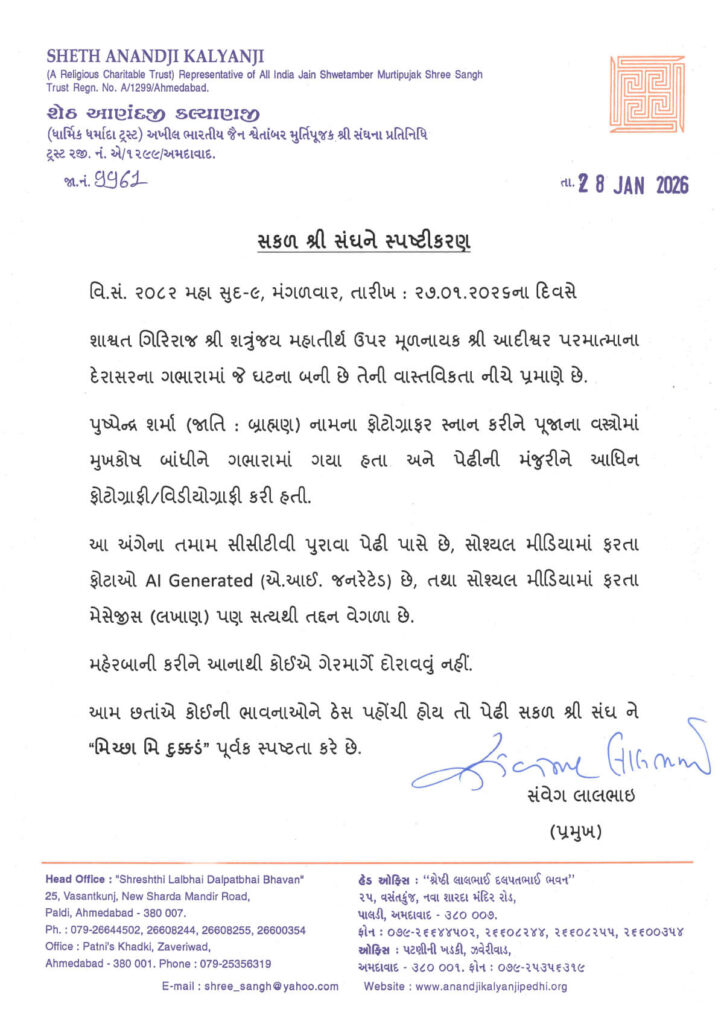 SHETH ANANDJI KALYANJI
(A Religious Charitable Trust) Representative of All India Jain Shwetamber Murtipujak Shree Sangh
Trust Regn. No. A/1299/Ahmedabad.
શેઠ આણંદજી કલ્યાણજી
(ધાર્મિક ધર્માદા ટ્રસ્ટ) અખીલ ભારતીય જૈન શ્વેતાંબર મુર્તિપૂજક શ્રી સંઘના પ્રતિનિધિ
ટ્રસ્ટ રજી. નં. એ/૧૨૯૯/અમદાવાદ.
જા.નં. 9961
તા. 28 JAN 2026
સકળ શ્રી સંઘને સ્પષ્ટીકરણ
વિ.સં. ૨૦૮૨ મહા સુદ-૯, મંગળવાર, તારીખ : ૨૭.૦૧.૨૦૨૬ના દિવસે
શાશ્વત ગિરિરાજ શ્રી શત્રુંજય મહાતીર્થ ઉપર મૂળનાયક શ્રી આદીશ્વર પરમાત્માના
દેરાસરના ગભારામાં જે ઘટના બની છે તેની વાસ્તવિકતા નીચે પ્રમાણે છે.
પુષ્પેન્દ્ર શર્મા (જાતિ : બ્રાહ્મણ) નામના ફોટોગ્રાફર સ્નાન કરીને પૂજાના વસ્ત્રોમાં
મુખકોષ બાંધીને ગભારામાં ગયા હતા અને પેઢીની મંજુરીને આધિન
ફોટોગ્રાફી/વિડીયોગ્રાફી કરી હતી.
આ અંગેના તમામ સીસીટીવી પુરાવા પેઢી પાસે છે, સોશ્યલ મીડિયામાં ફરતા
ફોટાઓ AI Generated (એ.આઈ. જનરેટેડ) છે, તથા સોશ્યલ મીડિયામાં ફરતા
મેસેજીસ (લખાણ) પણ સત્યથી તદ્દન વેગળા છે.
મહેરબાની કરીને આનાથી કોઈએ ગેરમાર્ગે દોરાવવું નહીં.
આમ છતાંએ કોઈની ભાવનાઓને ઠેસ પહોંચી હોય તો પેઢી સકળ શ્રી સંઘ ને
“મિચ્છા મિ દુક્કડં” પૂર્વક સ્પષ્ટતા કરે છે.
સંવેગ લાલભાઇ
(પ્રમુખ)
Head Office : "Shreshthi Lalbhai Dalpatbhai Bhavan"
25, Vasantkunj, New Sharda Mandir Road,
Paldi, Ahmedabad - 380 007.
Ph. : 079-26644502, 26608244, 26608255, 26600354
Office : Patni's Khadki, Zaveriwad,
Ahmedabad - 380 001. Phone : 079-25356319
હેડ ઓફિસ : “શ્રેષ્ઠી લાલભાઈ દલપતભાઈ ભવન”
૨૫, વસંતકુંજ, નવા શારદા મંદિર રોડ,
પાલડી, અમદાવાદ - ૩૮૦ ૦૦૭.
ફોન : ૦૭૯-૨૬૬૪૪૫૦૨, ૨૬૬૦૮૨૪૪, ૨૬૬૦૮૨૫૫, ૨૬૬૦૦૩૫૪
ઓફિસ : પટણીની ખડકી, ઝવેરીવાડ,
અમદાવાદ - ૩૮૦ ૦૦૧. ફોન : ૦૭૯-૨૫૩૫૬૩૧૯
E-mail : shree_sangh@yahoo.com
Website : www.anandjikalyanjipedhi.org